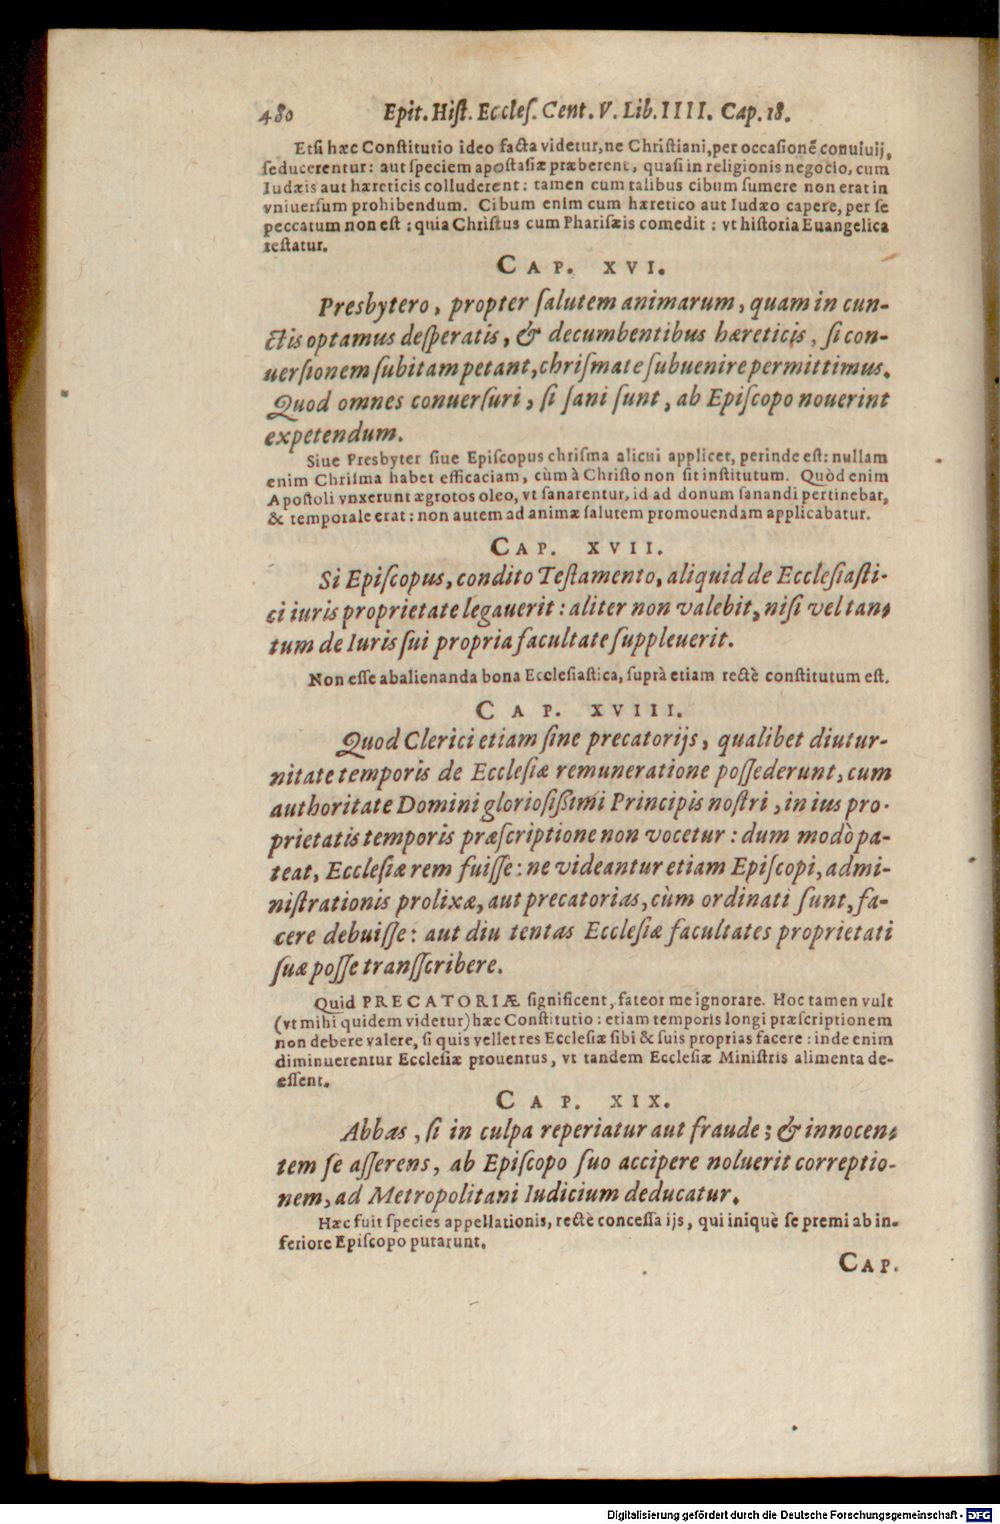 480 Epit. Hiſt. Eccleſ. Cent. V. Lib. IIII. Cap. 18.
Etſi hæc Conſtitutio ideo facta videtur, ne Chriſtiani, per occaſionē conuiuij,
ſeducerentur: aut ſpeciem apoſtaſiæ præberent, quaſi in religionis negocio, cum
Iudæis aut hæreticis colluderent: tamen cum talibus cibum ſumere non erat in
vniuerſum prohibendum. Cibum enim cum hæretico aut Iudæo capere, per ſe
peccatum non eſt; quia Chriſtus cum Phariſæis comedit: vt hiſtoria Euangelica
teſtatur.
CAP. XVI.
Presbytero, propter ſalutem animarum, quam in cun-
ctis optamus deſperatis, & decumbentibus hæreticis, ſi con-
uerſionem ſubitam petant, chriſmate ſubuenire permittimus.
Quod omnes conuerſuri, ſi ſani ſunt, ab Epiſcopo nouerint
expetendum.
Siue Presbyter ſiue Epiſcopus chriſma alicui applicet, perinde eſt: nullam
enim Chriſma habet efficaciam, cùm à Chriſto non ſit inſtitutum. Quòd enim
Apoſtoli vnxerunt ægrotos oleo, vt ſanarentur, id ad donum ſanandi pertinebat,
& temporale erat: non autem ad animæ ſalutem promouendam applicabatur.
CAP. XVII.
Si Epiſcopus, condito Teſtamento, aliquid de Eccleſiaſti-
ci iuris proprietate legauerit: aliter non valebit, niſi vel tan-
tum de Iuris ſui propria facultate ſuppleuerit.
Non eſſe abalienanda bona Eccleſiaſtica, ſuprà etiam rectè conſtitutum eſt.
CAP. XVIII.
Quod Clerici etiam ſine precatorijs, qualibet diutur-
nitate temporis de Eccleſiæ remuneratione poſſederunt, cum
authoritate Domini glorioſiſſimi Principis noſtri, in ius pro-
prietatis temporis præſcriptione non vocetur: dum modò pa-
teat, Eccleſiæ rem fuiſſe: ne videantur etiam Epiſcopi, admi-
niſtrationis prolixæ, aut precatorias, cùm ordinati ſunt, fa-
cere debuiſſe: aut diu tentas Eccleſiæ facultates proprietati
ſuæ poſſe tranſſcribere.
Quid PRECATORIÆ ſignificent, fateor me ignorare. Hoc tamen vult
(vt mihi quidem videtur) hæc Conſtitutio: etiam temporis longi præſcriptionem
non debere valere, ſi quis vellet res Eccleſiæ ſibi & ſuis proprias facere: inde enim
diminuerentur Eccleſiæ prouentus, vt tandem Eccleſiæ Miniſtris alimenta de-
eſſent.
CAP. XIX.
Abbas, ſi in culpa reperiatur aut fraude; & innocen-
tem ſe aſſerens, ab Epiſcopo ſuo accipere noluerit correptio-
nem, ad Metropolitani Iudicium deducatur.
Hæc fuit ſpecies appellationis, rectè conceſſa ijs, qui iniquè ſe premi ab in-
feriore Epiſcopo putarunt.
CAP.
Digitalisierung gefördert durch die Deutsche Forschungsgemeinschaft - DFG